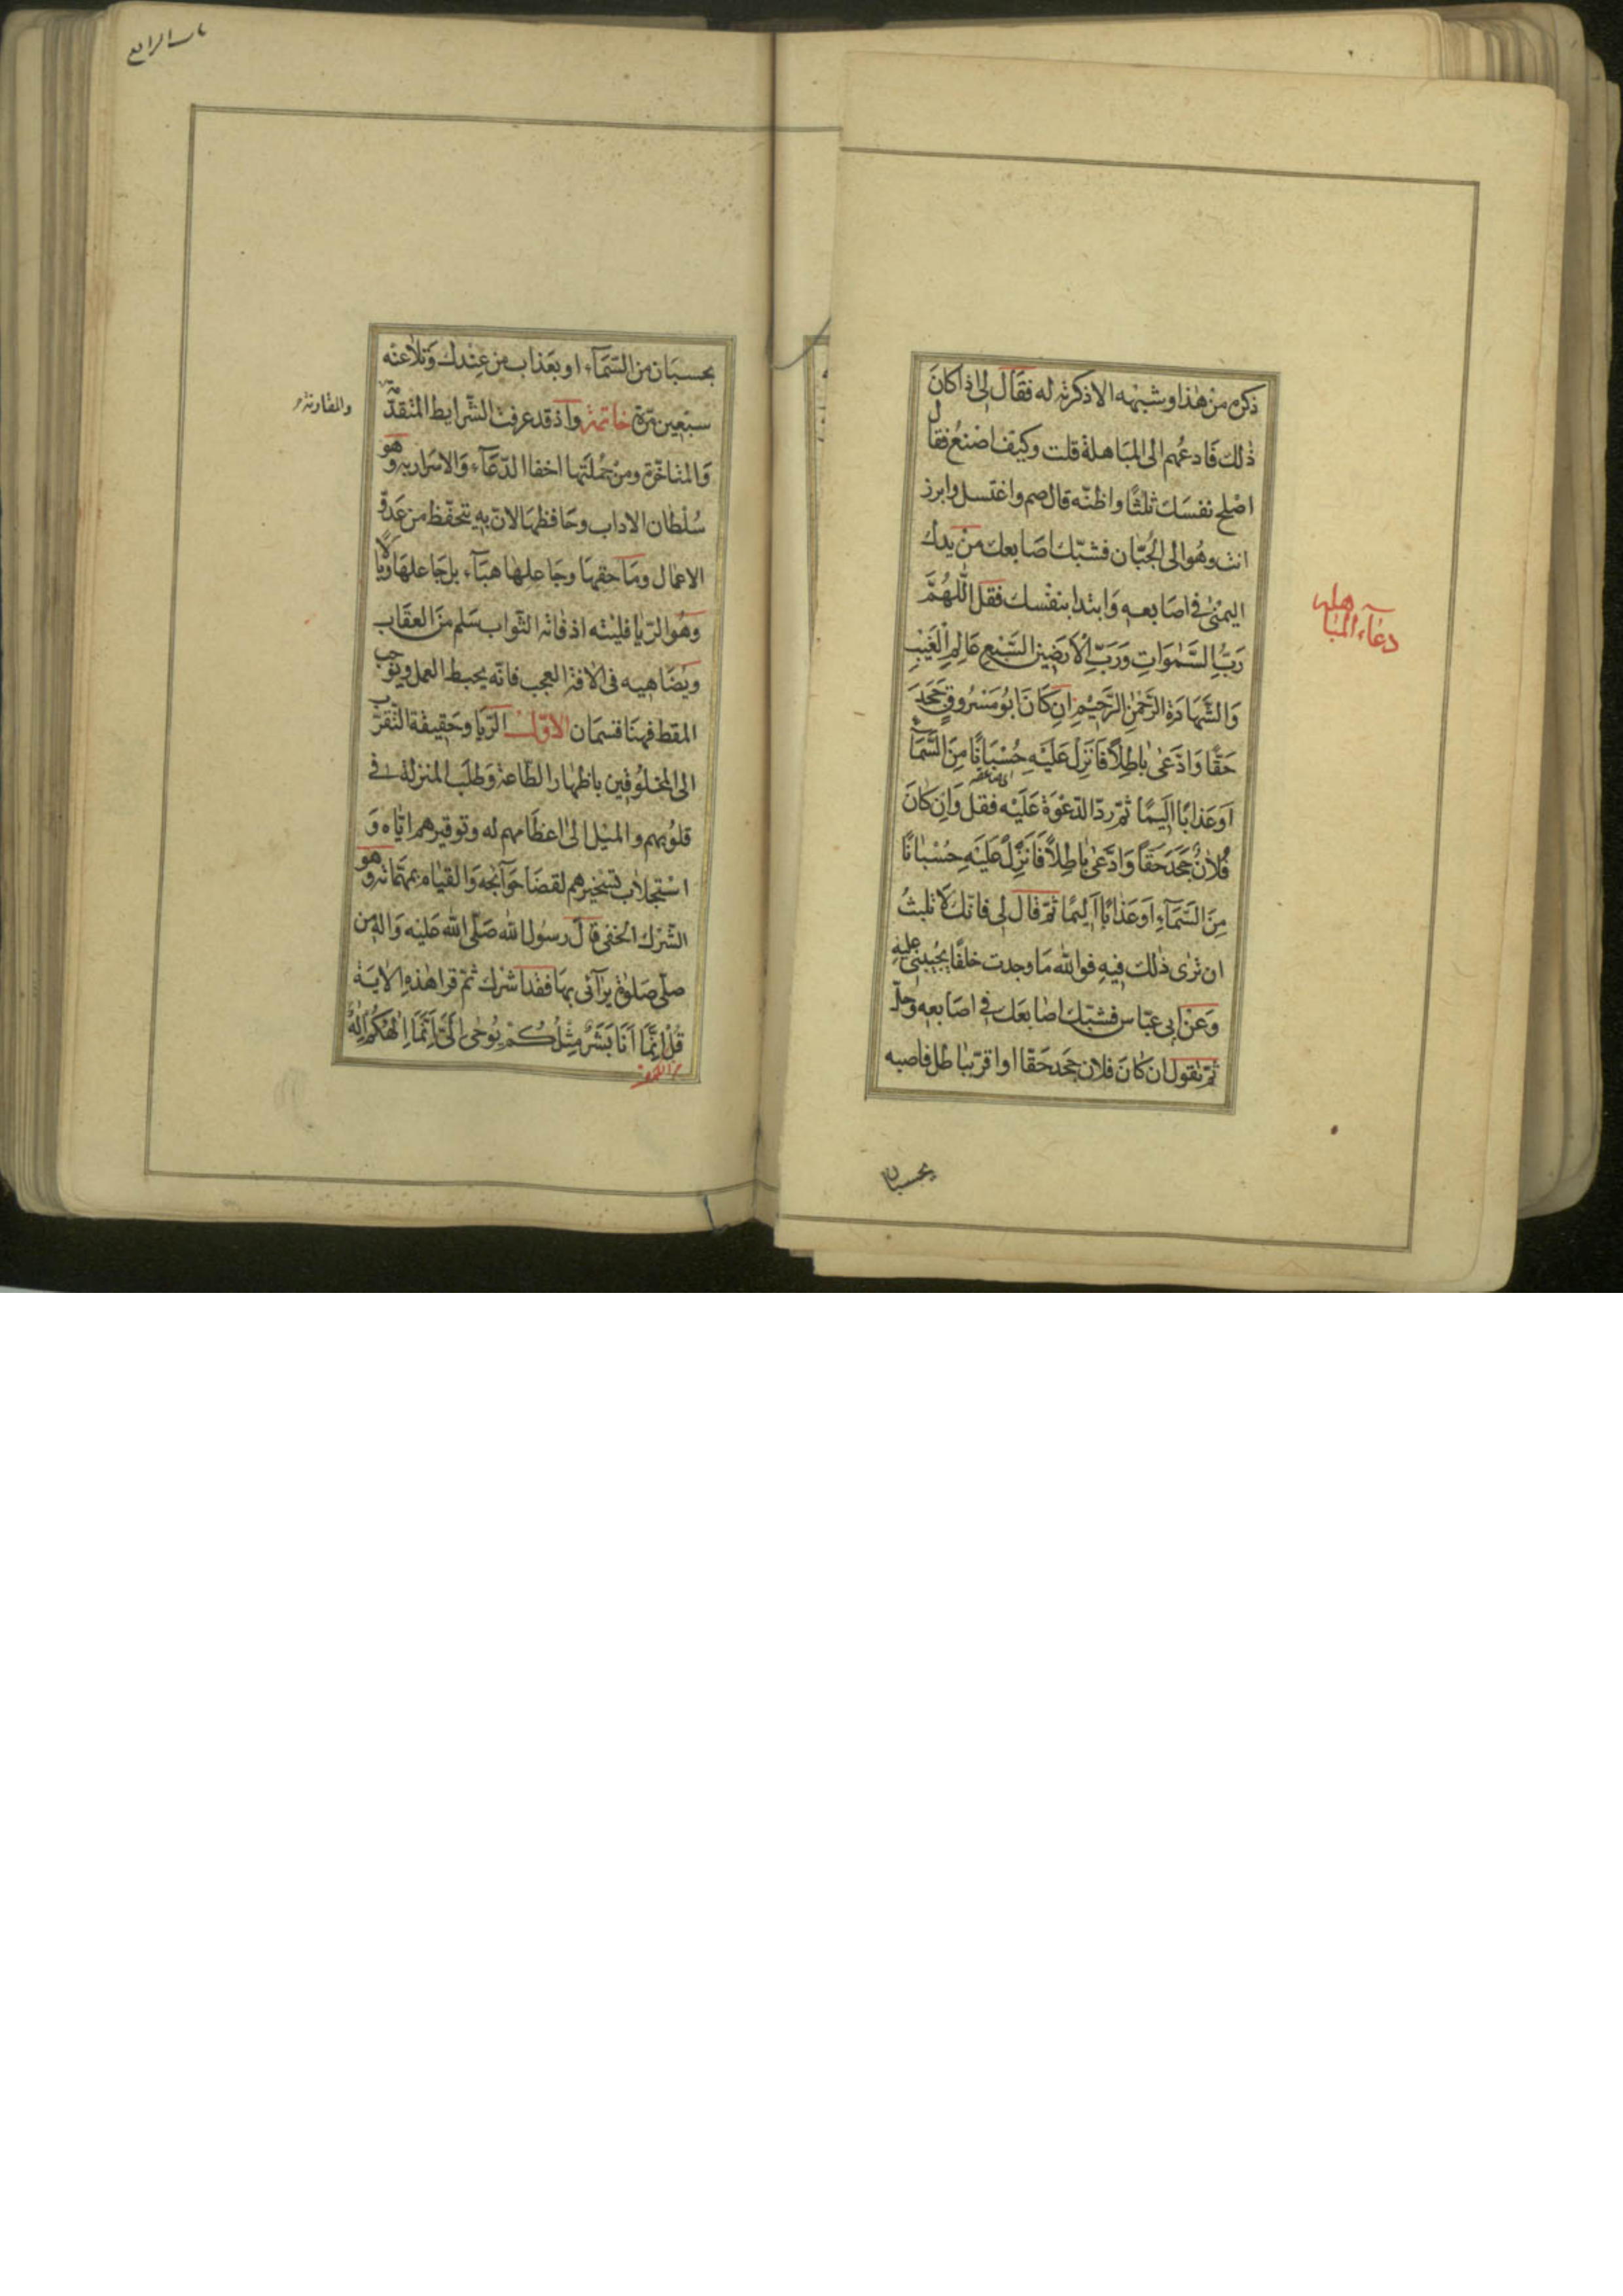 ذكره من هذا و شبهه الا ذكرته له فقال لى اذا كان
ذلك فادعهم الى المباهلة قلت وكيف اصنع فقال
اصلح نفسك ثلثا واظنه قال صم واغتسل وابرز
انت وهو الى الجبان فشبك اصابعك من يدك
اليمنى فى اصابعه وابتدا بنفسك فقل اللهم
رَبَّ السَّمٰوَاتِ وَرَبَّ الْاَرَضِينَ السَّبْعِ عَالِمَ الْغَيْبِ
وَالشَّهَادَةِ الرَّحْمٰنَ الرَّحِيْمَ اِنْ كَانَ اَبُو مَسْرُوقٍ جَحَدَ
حَقًّا وَادَّعٰى بَاطِلًا فَاَنْزِلْ عَلَيْهِ حُسْبَانًا مِنَ السَّمَاءِ
اَوْ عَذَابًا اَلِيمًا ثمّ ردّ الدعوة عليه فقل وَاِنْ كَانَ
فُلَانٌ جَحَدَ حَقًّا وَادَّعٰى بَاطِلًا فَاَنْزِلْ عَلَيْهِ حُسْبَانًا
مِنَ السَّمَآءِ اَوْ عَذَابًا اَلِيمًا ثمّ قال لى فانّك لا تلبث
ان ترى ذلك فيه فوالله ما وجدت خلقا يجيبنى عليه
وعن ابى عباس فشبّك اصابعك فى اصابعه
ثمّ تقول ان كان فلان جحد حقا او اقرّ بباطل فاصبه
دعآء المباهله
بحسبان
باب الرابع
بحسبان من السّمآء او بعذاب من عندك وتلاعنه
سبعين مرّة خاتمة واذ قد عرفت الشرايط المتقدّمة
والمقارنة
والمتاخّرة ومن جملتها اخفا الدّعآء والاسرار به وهو
سلطان الاداب وحافظها لانّ به يتحفّظ من عدوّ
الاعمال وماحقها وجاعلها هبآء بل جاعلها وبالا
وهو الرّيا فليته اذ فاته الثواب سلم من العقاب
ويضاهيه فى الافة العجب فانّه يحبط العمل ويوجب
المقط فهنا قسمان الاوّل الرّيا وحقيقة التقرّب
الى المخلوقين باظهار الطاعة وطلب المنزلة فى
قلوبهم والميل الى اعظامهم له وتوقيرهم ايّاه و
استجلاب تسخيرهم لقضا حوآئجه والقيام بمهمّاته وهو
الشرك الخفى قال رسول الله صلّى الله عليه واله من
صلّى صلوة يرآئى بها فقد اشرك ثمّ قرا هذه الاية
قُلْ اِنَّمَا اَنَا بَشَرٌ مِثْلُكُمْ يُوحٰى اِلَىَّ اَنَّمَا اِلٰهُكُمْ اِلٰهٌ